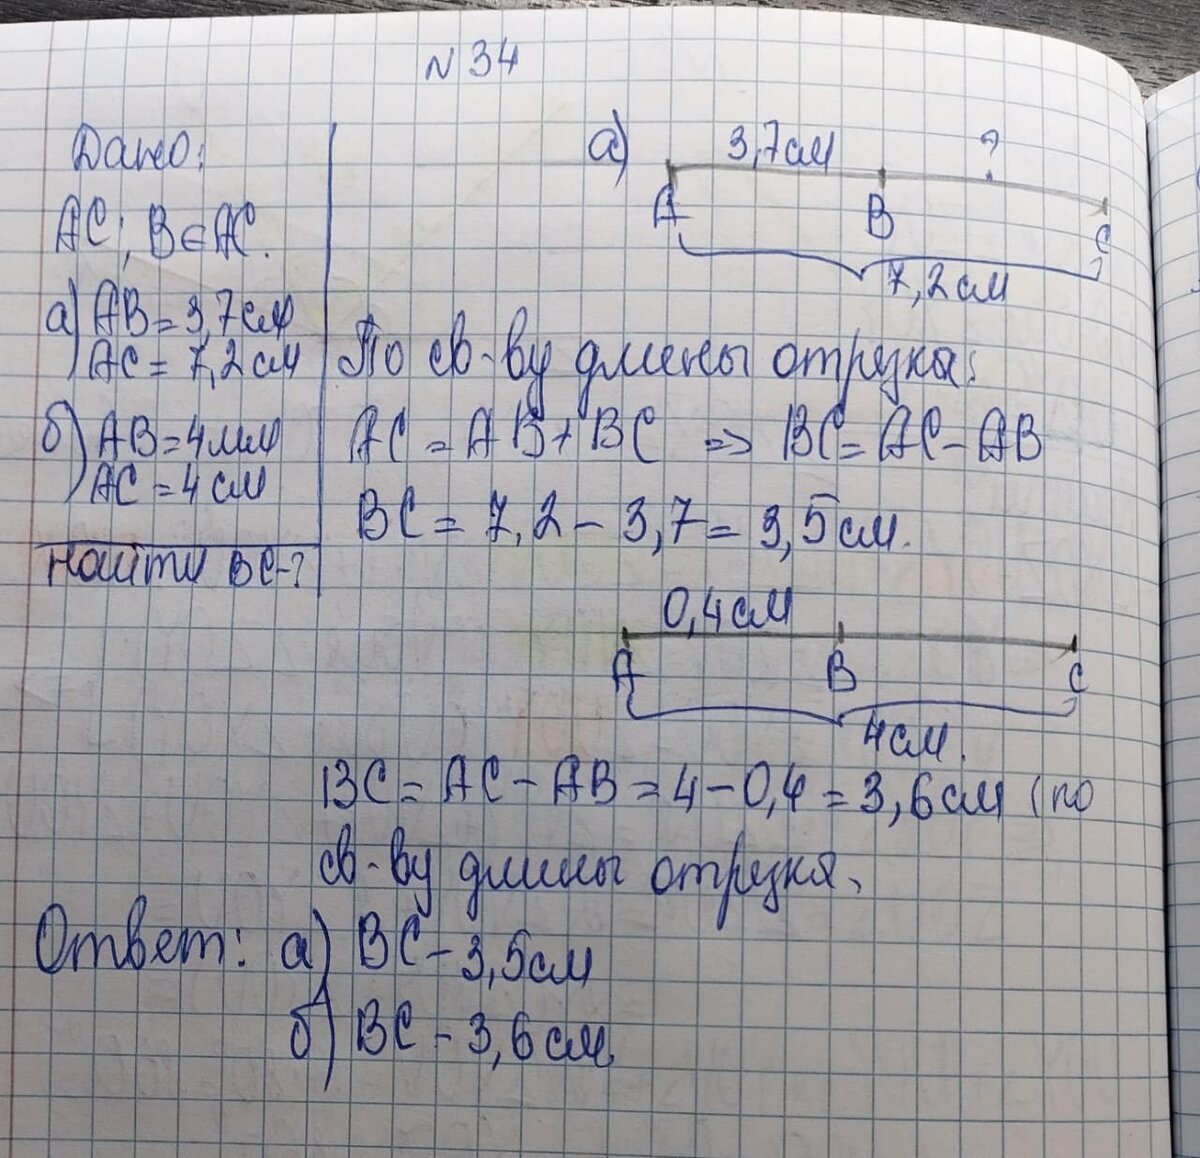 N 34
Дано:
AC; B∈AC.
а) AB = 3,7 см
AC = 7,2 см
б) AB = 4 мм
AC = 4 см
Найти BC-?
а) 3,7 см ?
A B C
7,2 см
По св-ву длины отрезка:
AC = AB + BC => BC = AC - AB
BC = 7,2 - 3,7 = 3,5 см.
0,4 см
A B C
4 см.
BC = AC - AB = 4 - 0,4 = 3,6 см (по
св-ву длины отрезка.
Ответ: а) BC - 3,5 см
б) BC - 3,6 см.